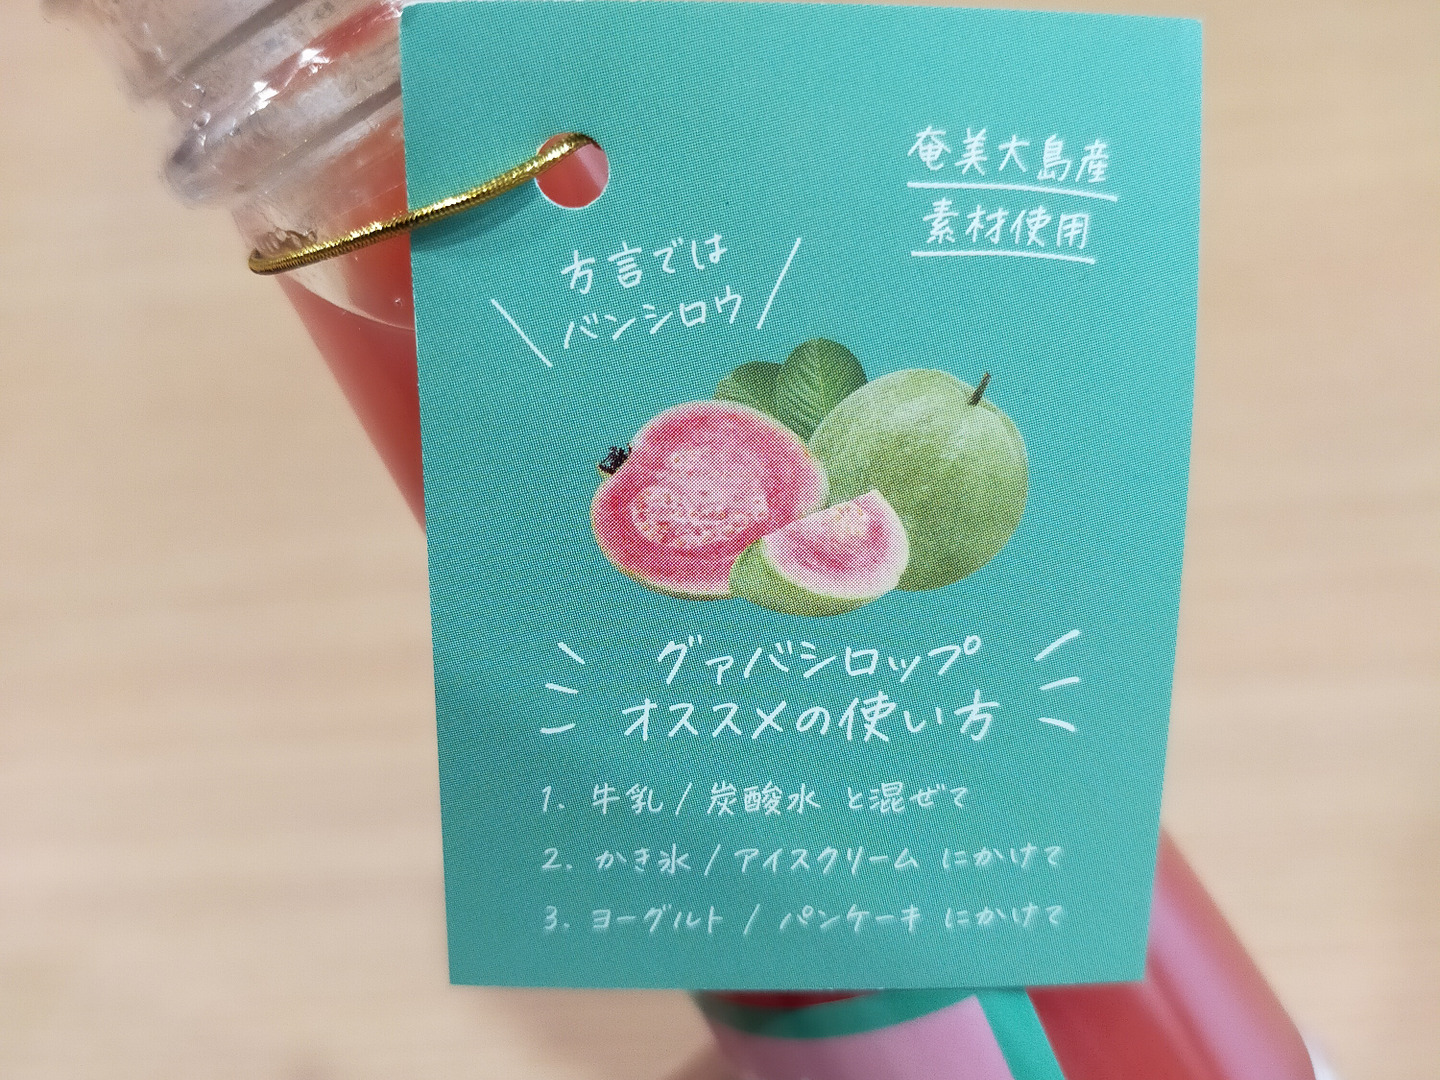 奄美大島産
素材使用
方言では
バンシロウ
グァバシロップ
オススメの使い方
1. 牛乳 / 炭酸水 と混ぜて
2. かき氷 / アイスクリーム にかけて
3. ヨーグルト / パンケーキ にかけて